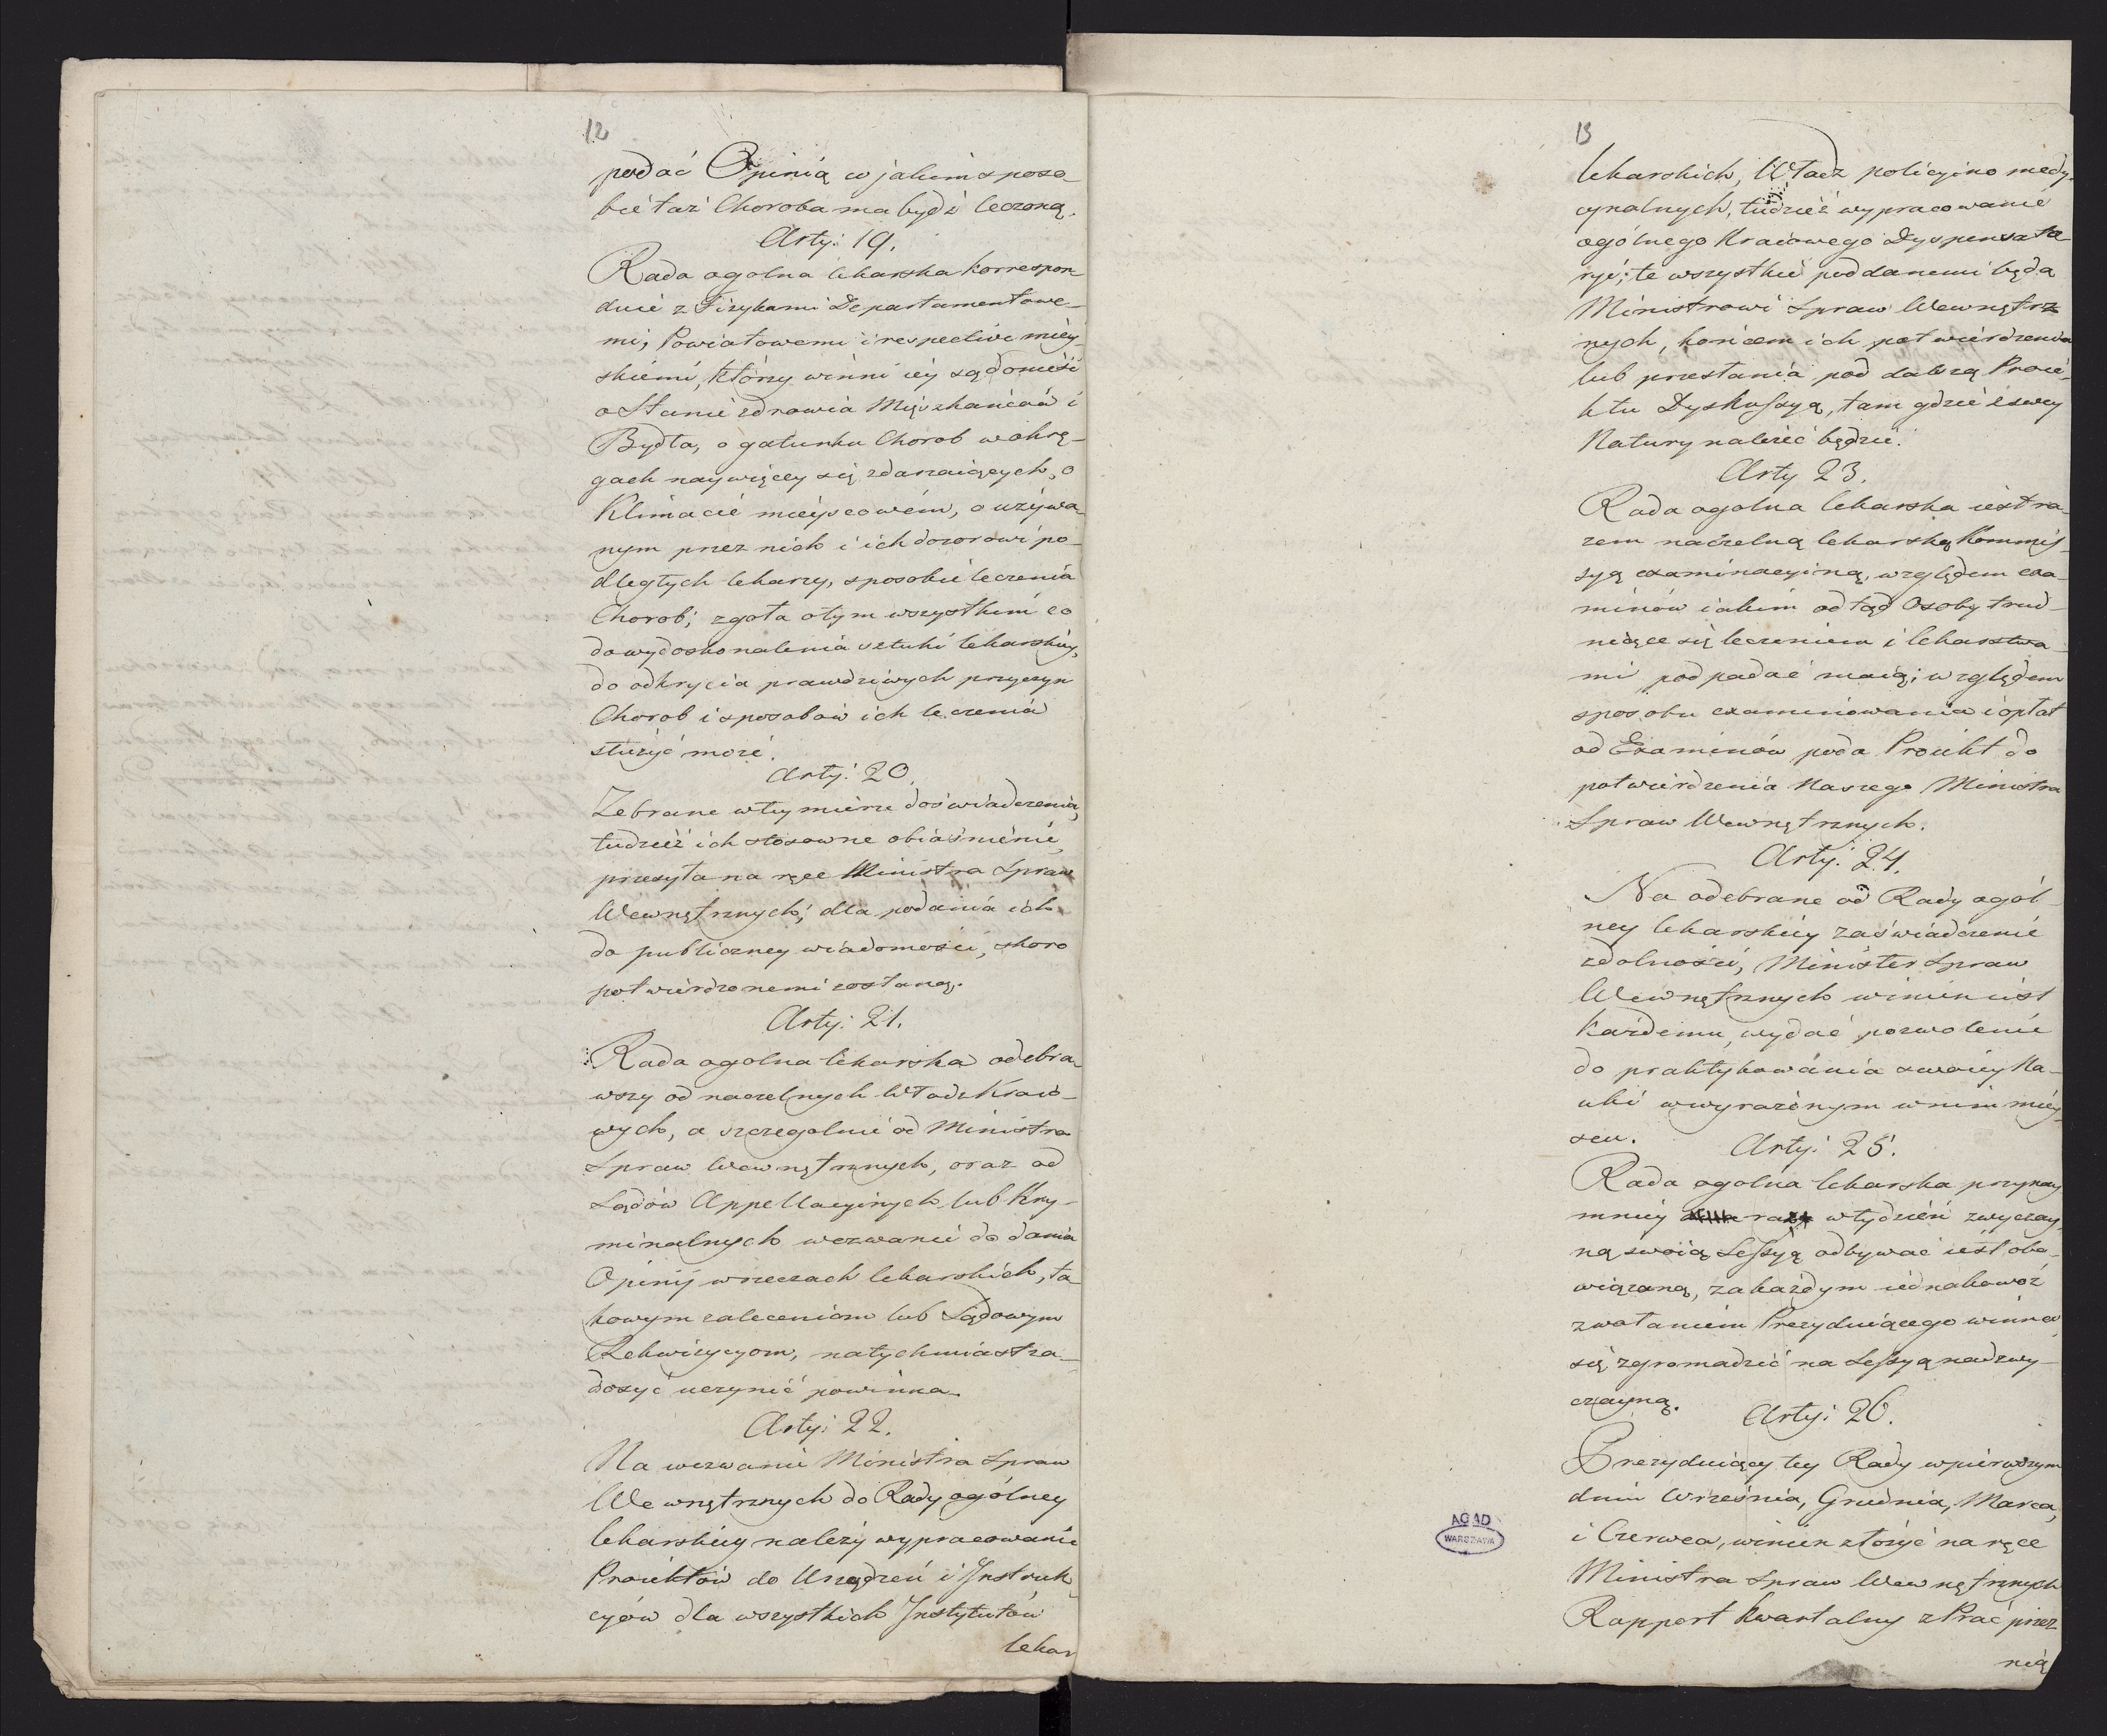 12
podać Opinią w jakim sposo-
bie taż Choroba ma bydź leczoną.
Arty: 19.
Rada ogolna lekarska korrespon-
duie z Fizykami Departamentowe-
mi, Powiatowemi i respective miey-
skiemi, którzy winni iey są donieść
o Stanie zdrowia Mięszkańców i
Bydła, o gatunku Chorob w okrę-
gach naywięcey się zdarzaiących, o
Klimacie mieyscowem, o używa-
nym przez nich i ich dozorowi po-
dległych lekarzy, sposobie leczenia
Chorob; zgoła o tym wszystkim co
do wydoskonalenia sztuki lekarskiey,
do odkrycia prawdziwych przyczyn
Chorob i sposobów ich leczenia
służyć może.
Arty: 20.
Zebrane w tey mierze doświadczenia,
tudzież ich stosowne obiaśnienie,
przesyła na ręce Ministra Spraw
Wewnętrznych; dla podania ich
do publiczney wiadomości, skoro
potwierdzonemi zostaną.
Arty: 21.
Rada ogolna lekarska odebra-
wszy od naczelnych Władz Kraio-
wych, a szczegolnie od Ministra
Spraw Wewnętrznych, oraz od
Sądów Appellacyinych lub Kry-
minalnych wezwanie do dania
Opinij w rzeczach lekarskich, ta-
kowym zaleceniom lub Sądowym
Rekwizycyom, natychmiast za-
dosyć uczynić powinna.
Arty: 22.
Na wezwanie Ministra Spraw
Wewnętrznych do Rady ogólney
lekarskiey należy wypracowanie
Proiektów do Urządzeń i Instruk-
cyów dla wszystkich Instytutów
lekar
13
lekarskich, Władz policyino medy-
cynalnych, tudzież wypracowanie
ogólnego Kraiowego Dyspensato-
ryi; te wszystkie poddanemi będą
Ministrowi Spraw Wewnętrz
nych, końcem ich potwierdzenia
lub przesłania pod dalszą Proie-
ktu Dyskussyą, tam gdzie z swey
Natury należeć będzie.
Arty 23.
Rada ogolna lekarska iest ra-
zem naczelną lekarską Kommis-
syą examinacyiną, względem exa-
minów iakim odtąd Osoby trud-
niące się leczeniem i lekarstwa-
mi podpadać maią; względem
sposobu examinowania i opłat
od Examinów poda Proiekt do
potwierdzenia Naszego Ministra
Spraw Wewnętrznych.
Arty: 24.
Na odebrane od Rady ogól-
ney lekarskiey zaświadczenie
zdolności, Minister Spraw
Wewnętrznych winien iest
każdemu, wydać pozwolenie
do praktykowania swoiey Na-
uki w wyrażonym w nim miey-
scu.
Arty: 25.
Rada ogolna lekarska przynay
mniey raz w tydzień zwyczay-
ną swoią Sessyą odbywać iest obo-
wiązaną, za każdym iednakowoż
zwołaniem Prezyduiącego winna
się zgromadzić na Sessyą nadzwy-
czayną.
Arty: 26.
Prezyduiący tey Rady w pierwszym
dniu Września, Grudnia, Marca,
i Czerwca, winien złożyć na ręce
Ministra Spraw Wewnętrznych
Rapport kwartalny z Prac przez
nią
AGAD
WARSZAWA